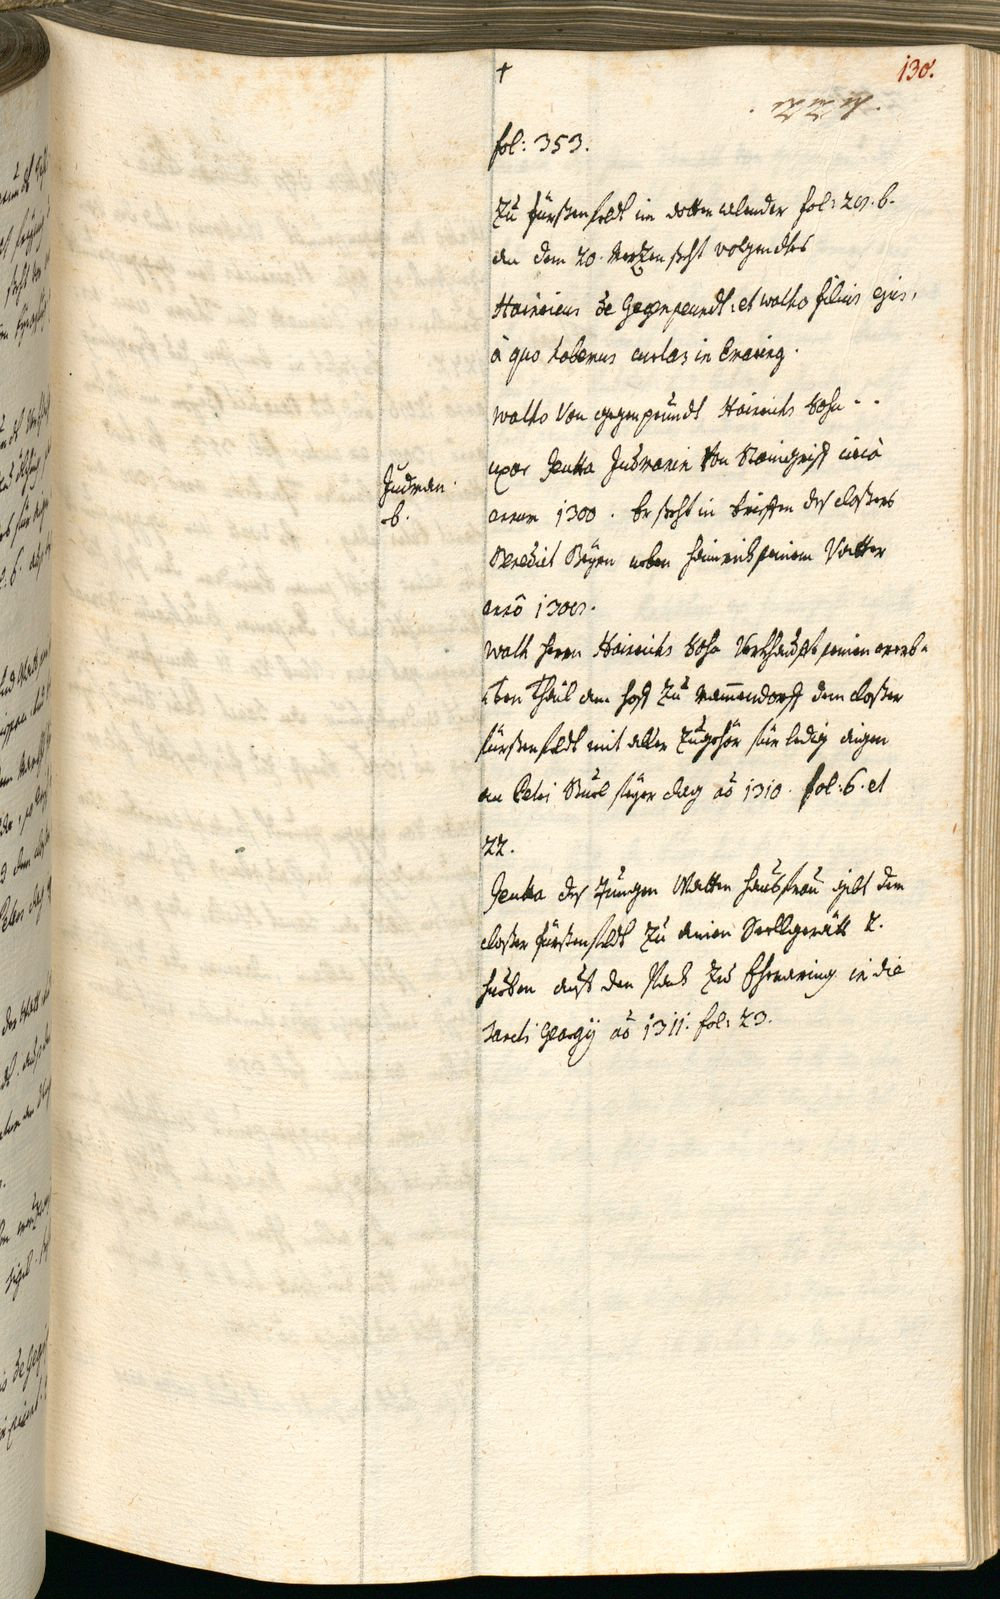 130.
fol: 353.
Zu fürstenfeldt im dotten calender fol: 29. b.
an dem 20. Mertzen steht volgendtes
Hainricus de Gegenpeundt. et walto filius ejus,
à quo habemus curias in Eraring.
Walto Von gegenpeundt Hainrichs Sohn - -
uxor Jeutta Judmanin Von Staingriff circà
annum 1300. Er steht in brieffen des closters
Benedict Beyrn neben Heinrich seinem Vatter
anno 1309.
Judman.
b.
Walth herrn Hainrichs Sohn Verkhaufft seinen ererb-
ten Thail am hoff Zu Mammendorff dem closter
fürstenfeldt mit aller Zugehör für ledig aigen
an Petri Stuel feyer Tag ao 1310. fol: 6. et
22.
Jeutta des Jungen Walten hausfrau gibt dem
closter fürstenfeldt Zu ainen Seellgerätt 2.
hueben auf den Zu Ehraring in die
Sancti Georgij ao 1311. fol: 23.